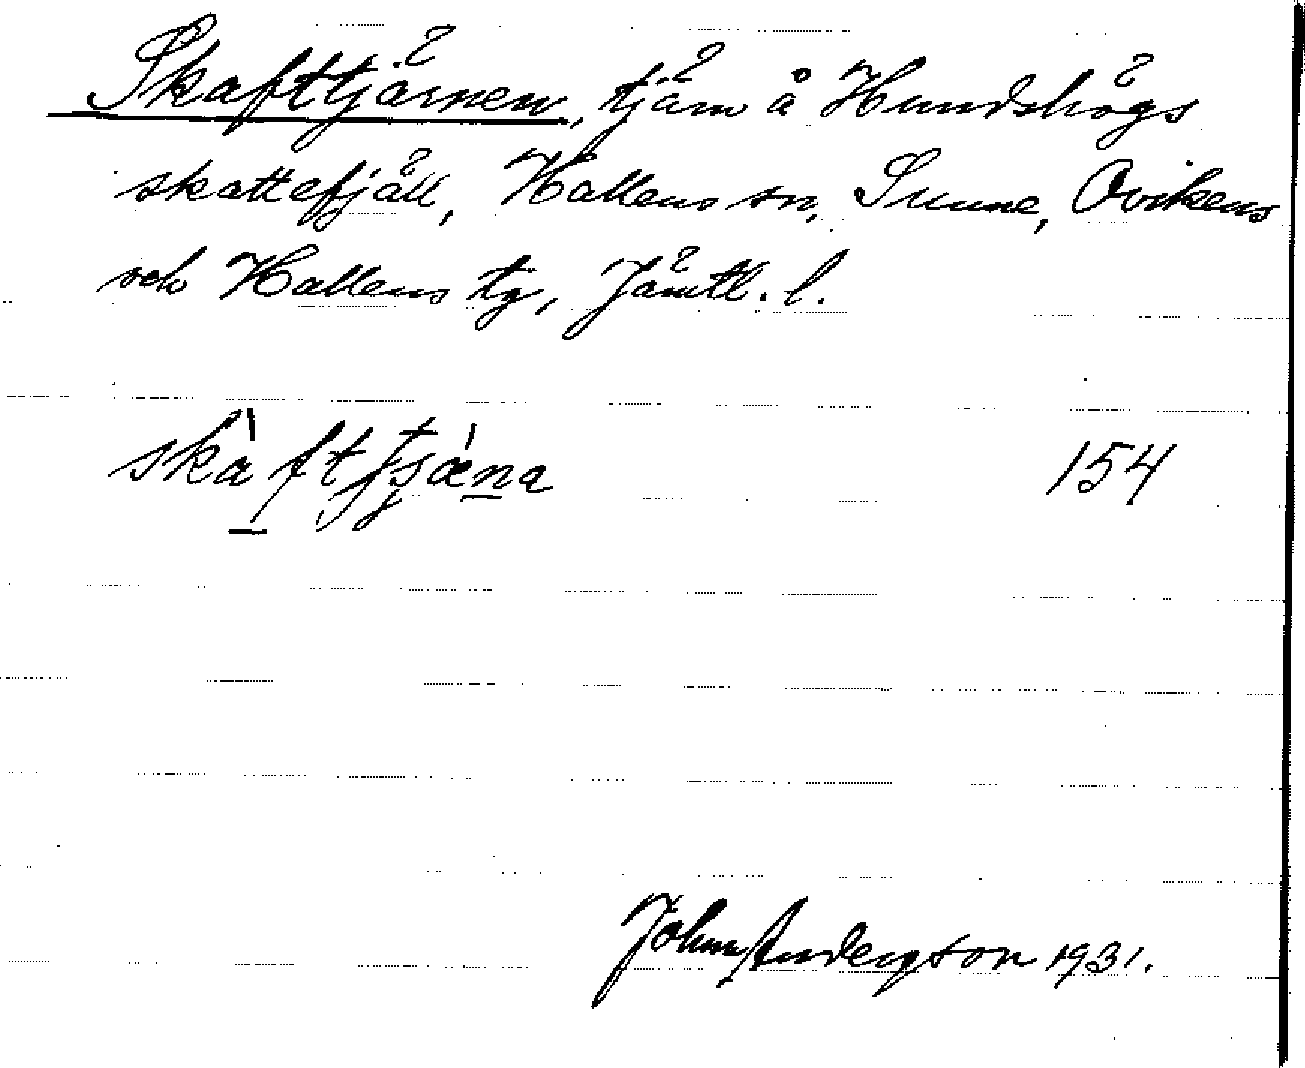 Skafttjärnen, tjärn å Hundshögs
skattefjäll, Hallens sn, Sunne, Ovikens
och Hallens tg, Jämtl. l.
154
John Anderson 1931.